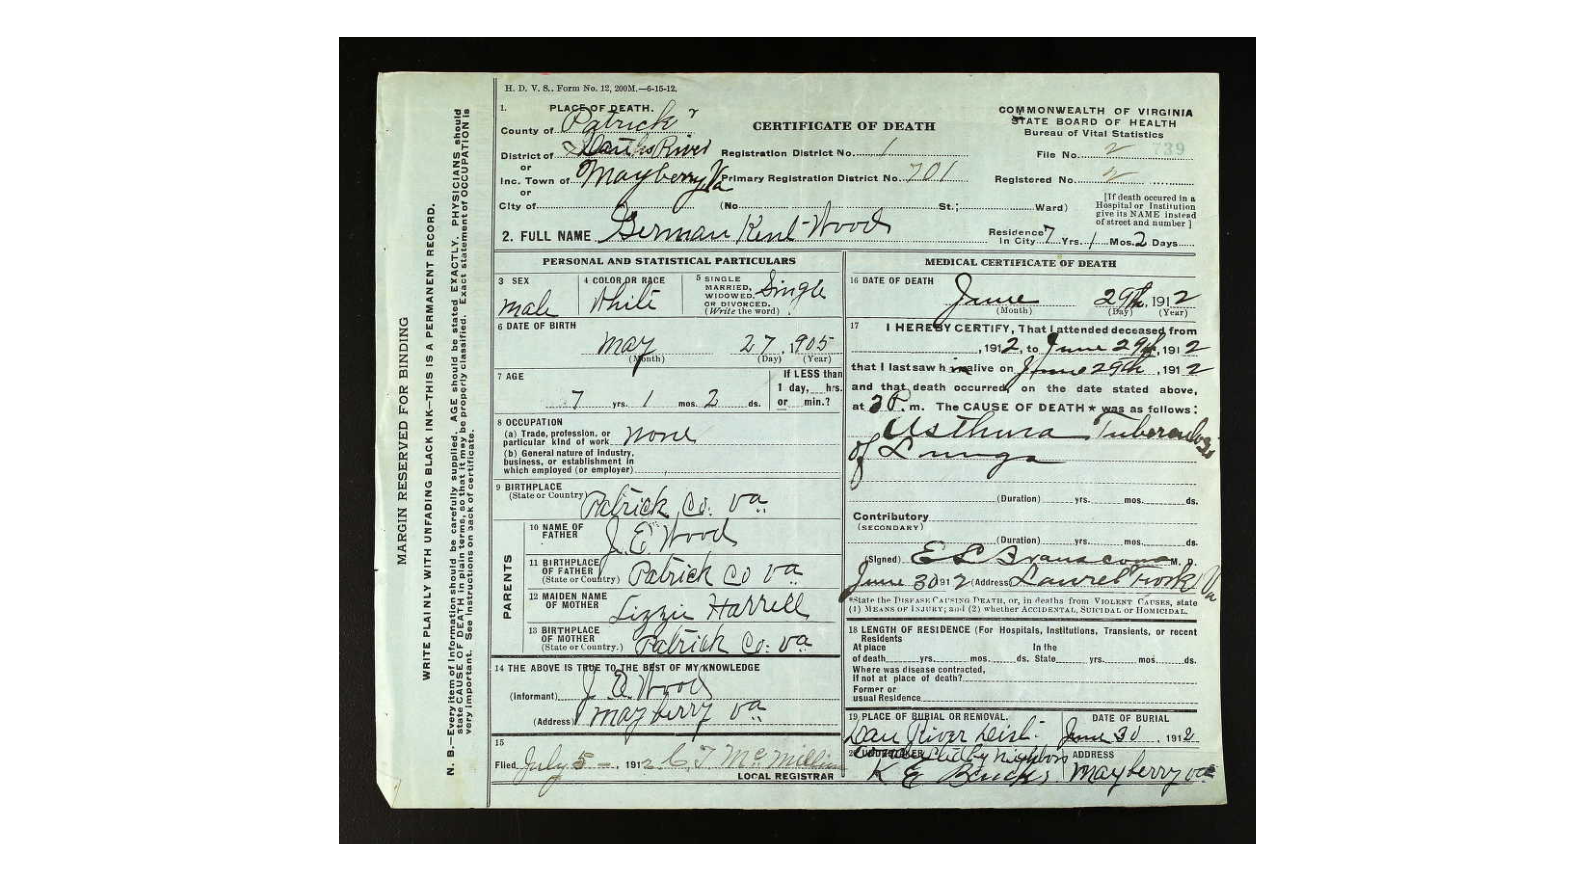 H. D. V. S.. Form No. 12, 200M.—6-15-12.
1. PLACE OF DEATH.
County of Patrick
District of Dan River
or
Inc. Town of Mayberry Va
or
City of
CERTIFICATE OF DEATH
COMMONWEALTH OF VIRGINIA
STATE BOARD OF HEALTH
Bureau of Vital Statistics
Registration District No. 1
File No. 2 739
Primary Registration District No. 701
Registered No. 2
(No. St.; Ward)
[If death occured in a
Hospital or Institution
give its NAME instead
of street and number]
2. FULL NAME German Kent Wood
Residence In City 7 Yrs. 1 Mos. 2 Days
PERSONAL AND STATISTICAL PARTICULARS
3 SEX
male
4 COLOR OR RACE
White
5 SINGLE
MARRIED,
WIDOWED,
OR DIVORCED.
(Write the word)
Single
6 DATE OF BIRTH
May 27, 1905
(Month) (Day) (Year)
7 AGE
7 yrs. 1 mos. 2 ds.
If LESS than
1 day, hrs.
or min.?
8 OCCUPATION
(a) Trade, profession, or
particular kind of work none
(b) General nature of industry,
business, or establishment in
which employed (or employer)
9 BIRTHPLACE
(State or Country) Patrick Co. Va
PARENTS
10 NAME OF
FATHER J. E Wood
11 BIRTHPLACE
OF FATHER
(State or Country) Patrick Co Va
12 MAIDEN NAME
OF MOTHER Lizzie Harrell
13 BIRTHPLACE
OF MOTHER
(State or Country.) Patrick Co. Va
14 THE ABOVE IS TRUE TO THE BEST OF MY KNOWLEDGE
(Informant) J. E. Wood
(Address) Mayberry Va
15
Filed July 5 –, 1912 C. T. McMillian
LOCAL REGISTRAR
MEDICAL CERTIFICATE OF DEATH
16 DATE OF DEATH
June 29th, 1912
(Month) (Day) (Year)
17 I HEREBY CERTIFY, That I attended deceased from
, 1912, to June 29th, 1912
that I last saw him alive on June 29th, 1912
and that death occurred, on the date stated above,
at 3 P. m. The CAUSE OF DEATH * was as follows:
Asthma Tuberculosis
of Lungs
(Duration) yrs. mos. ds.
Contributory
(SECONDARY)
(Duration) yrs. mos. ds.
(Signed) E L Branscome M. D.
June 30 1912 (Address) Laurel Fork Va
*State the DISEASE CAUSING DEATH, or, in deaths from VIOLENT CAUSES, state
(1) MEANS OF INJURY; and (2) whether ACCIDENTAL, SUICIDAL or HOMICIDAL.
18 LENGTH OF RESIDENCE (For Hospitals, Institutions, Transients, or recent
Residents
At place In the
of death yrs. mos. ds. State yrs. mos. ds.
Where was disease contracted,
if not at place of death?
Former or
usual Residence
19 PLACE OF BURIAL OR REMOVAL.
Dan River Dist.
DATE OF BURIAL
June 30, 1912
20 UNDERTAKER
by neighbors
K E
ADDRESS
Mayberry Va
MARGIN RESERVED FOR BINDING
WRITE PLAINLY WITH UNFADING BLACK INK—THIS IS A PERMANENT RECORD.
N. B.—Every item of information should be carefully supplied. AGE should be stated EXACTLY. PHYSICIANS should
state CAUSE OF DEATH in plain terms, so that it may be properly classified. Exact statement of OCCUPATION is
very important. See instructions on back of certificate.